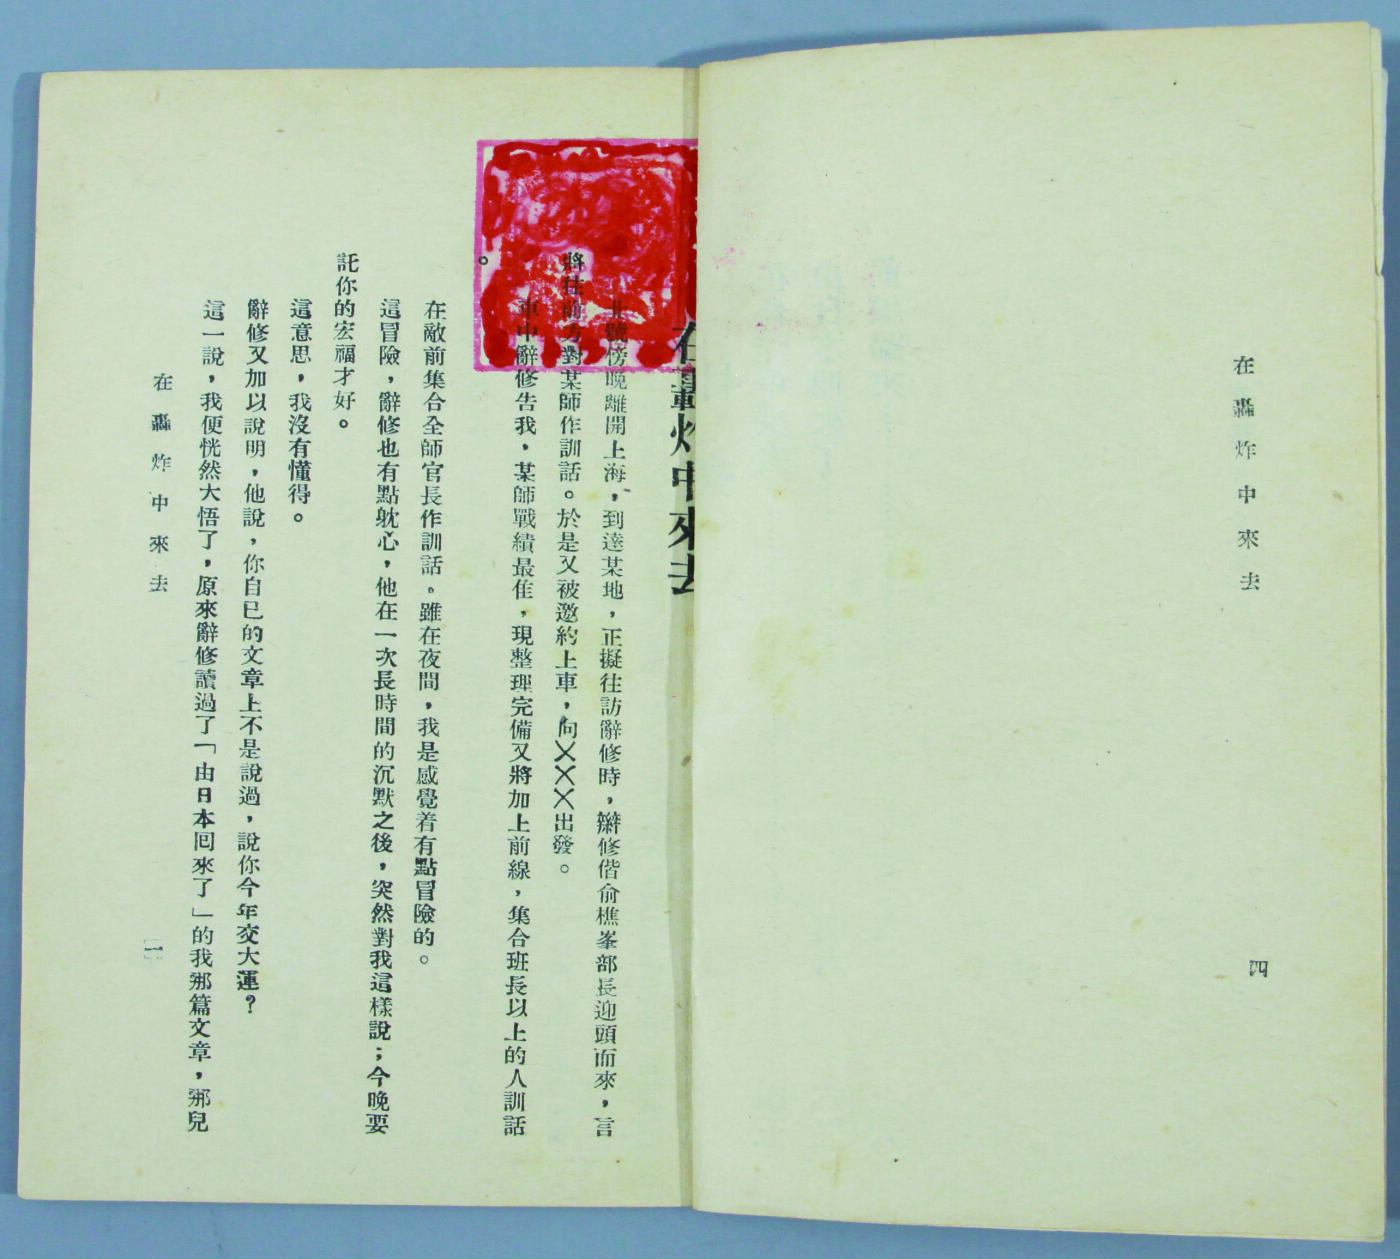 在轟炸中來去
四
在轟炸中來去
傍晚離開上海，到達某地，正擬往訪辭修時，辭修偕俞樵峯部長迎頭而來，言
將往前方對某師作訓話。於是又被邀約上車，向×××出發。
車中辭修告我，某師戰績最佳，現整理完備又將加上前線，集合班長以上的人訓話
。
在敵前集合全師官長作訓話。雖在夜間，我是感覺着有點冒險的。
這冒險，辭修也有點躭心，他在一次長時間的沉默之後，突然對我這樣說；今晚要
託你的宏福才好。
這意思，我沒有懂得。
辭修又加以說明，他說，你自已的文章上不是說過，說你今年交大運？
這一說，我便恍然大悟了，原來辭修讀過了「由日本回來了」的我那篇文章，那兒
在轟炸中來去
一